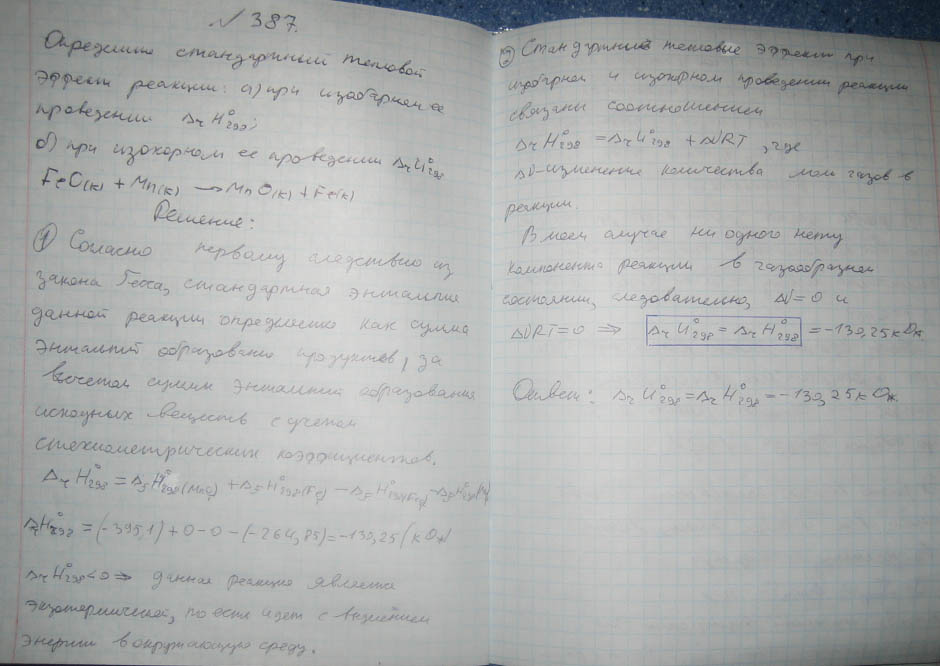 № 387.
Определить стандартный тепловой
эффект реакции: а) при изобарном ее
проведении ΔrH°298;
б) при изохорном ее проведении ΔrU°298
FeO(к) + Mn(к) → MnO(к) + Fe(к)
Решение:
① Согласно первому следствию из
закона Гесса, стандартная энтальпия
данной реакции определяется как сумма
энтальпий образования продуктов, за
вычетом суммы энтальпий образования
исходных веществ с учетом
стехиометрических коэффициентов.
ΔrH°298 = ΔfH°298(MnO) + ΔfH°298(Fe) − ΔfH°298(FeO) − ΔfH°298(Mn)
ΔrH°298 = (−395,1) + 0 − 0 − (−264,85) = −130,25 (кДж)
ΔrH°298 < 0 ⇒ данная реакция является
экзотермической, то есть идет с выделением
энергии в окружающую среду.
② Стандартные тепловые эффекты при
изобарном и изохорном проведении реакции
связаны соотношением
ΔrH°298 = ΔrU°298 + ΔνRT, где
Δν - изменение количества моль газов в
реакции.
В моем случае ни одного нету
компонента реакции в газообразном
состоянии, следовательно, Δν = 0 и
ΔνRT = 0 ⇒ ΔrU°298 = ΔrH°298 = −130,25 кДж
Ответ: ΔrU°298 = ΔrH°298 = −130,25 кДж